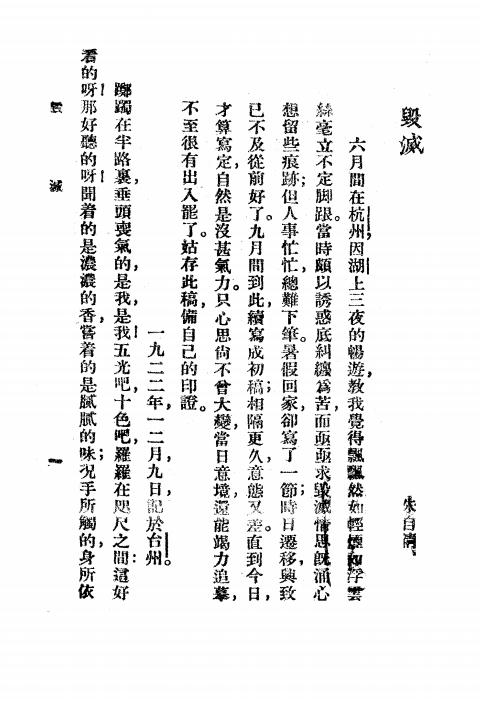 毀滅
朱自清
六月間在杭州因湖上三夜的暢遊，教我覺得飄飄然如輕煙，如浮雲，
絲毫立不定脚跟。當時頗以誘惑底糾纏爲苦，而亟亟求毀滅。情思既涌，心
想留些痕跡；但人事忙忙，總難下筆。暑假回家，卻寫了一節；時日遷移，興致
已不及從前好了。九月間到此，續寫成初稿；相隔更久，意態又差。直到今日，
才算寫定，自然是沒甚氣力。只心思尙不曾大變，當日意境，還能竭力追摹，
不至很有出入罷了。姑存此稿，備自己的印證。
一九二二年，一二月九日，記於台州。
躑躅在半路裏，垂頭喪氣的，是我，是我！五光吧，十色吧，羅羅在咫尺之間：這好
看的呀！那好聽的呀！聞着的是濃濃的香，嘗着的是膩膩的味；况手所觸的，身所依
毀 滅
一